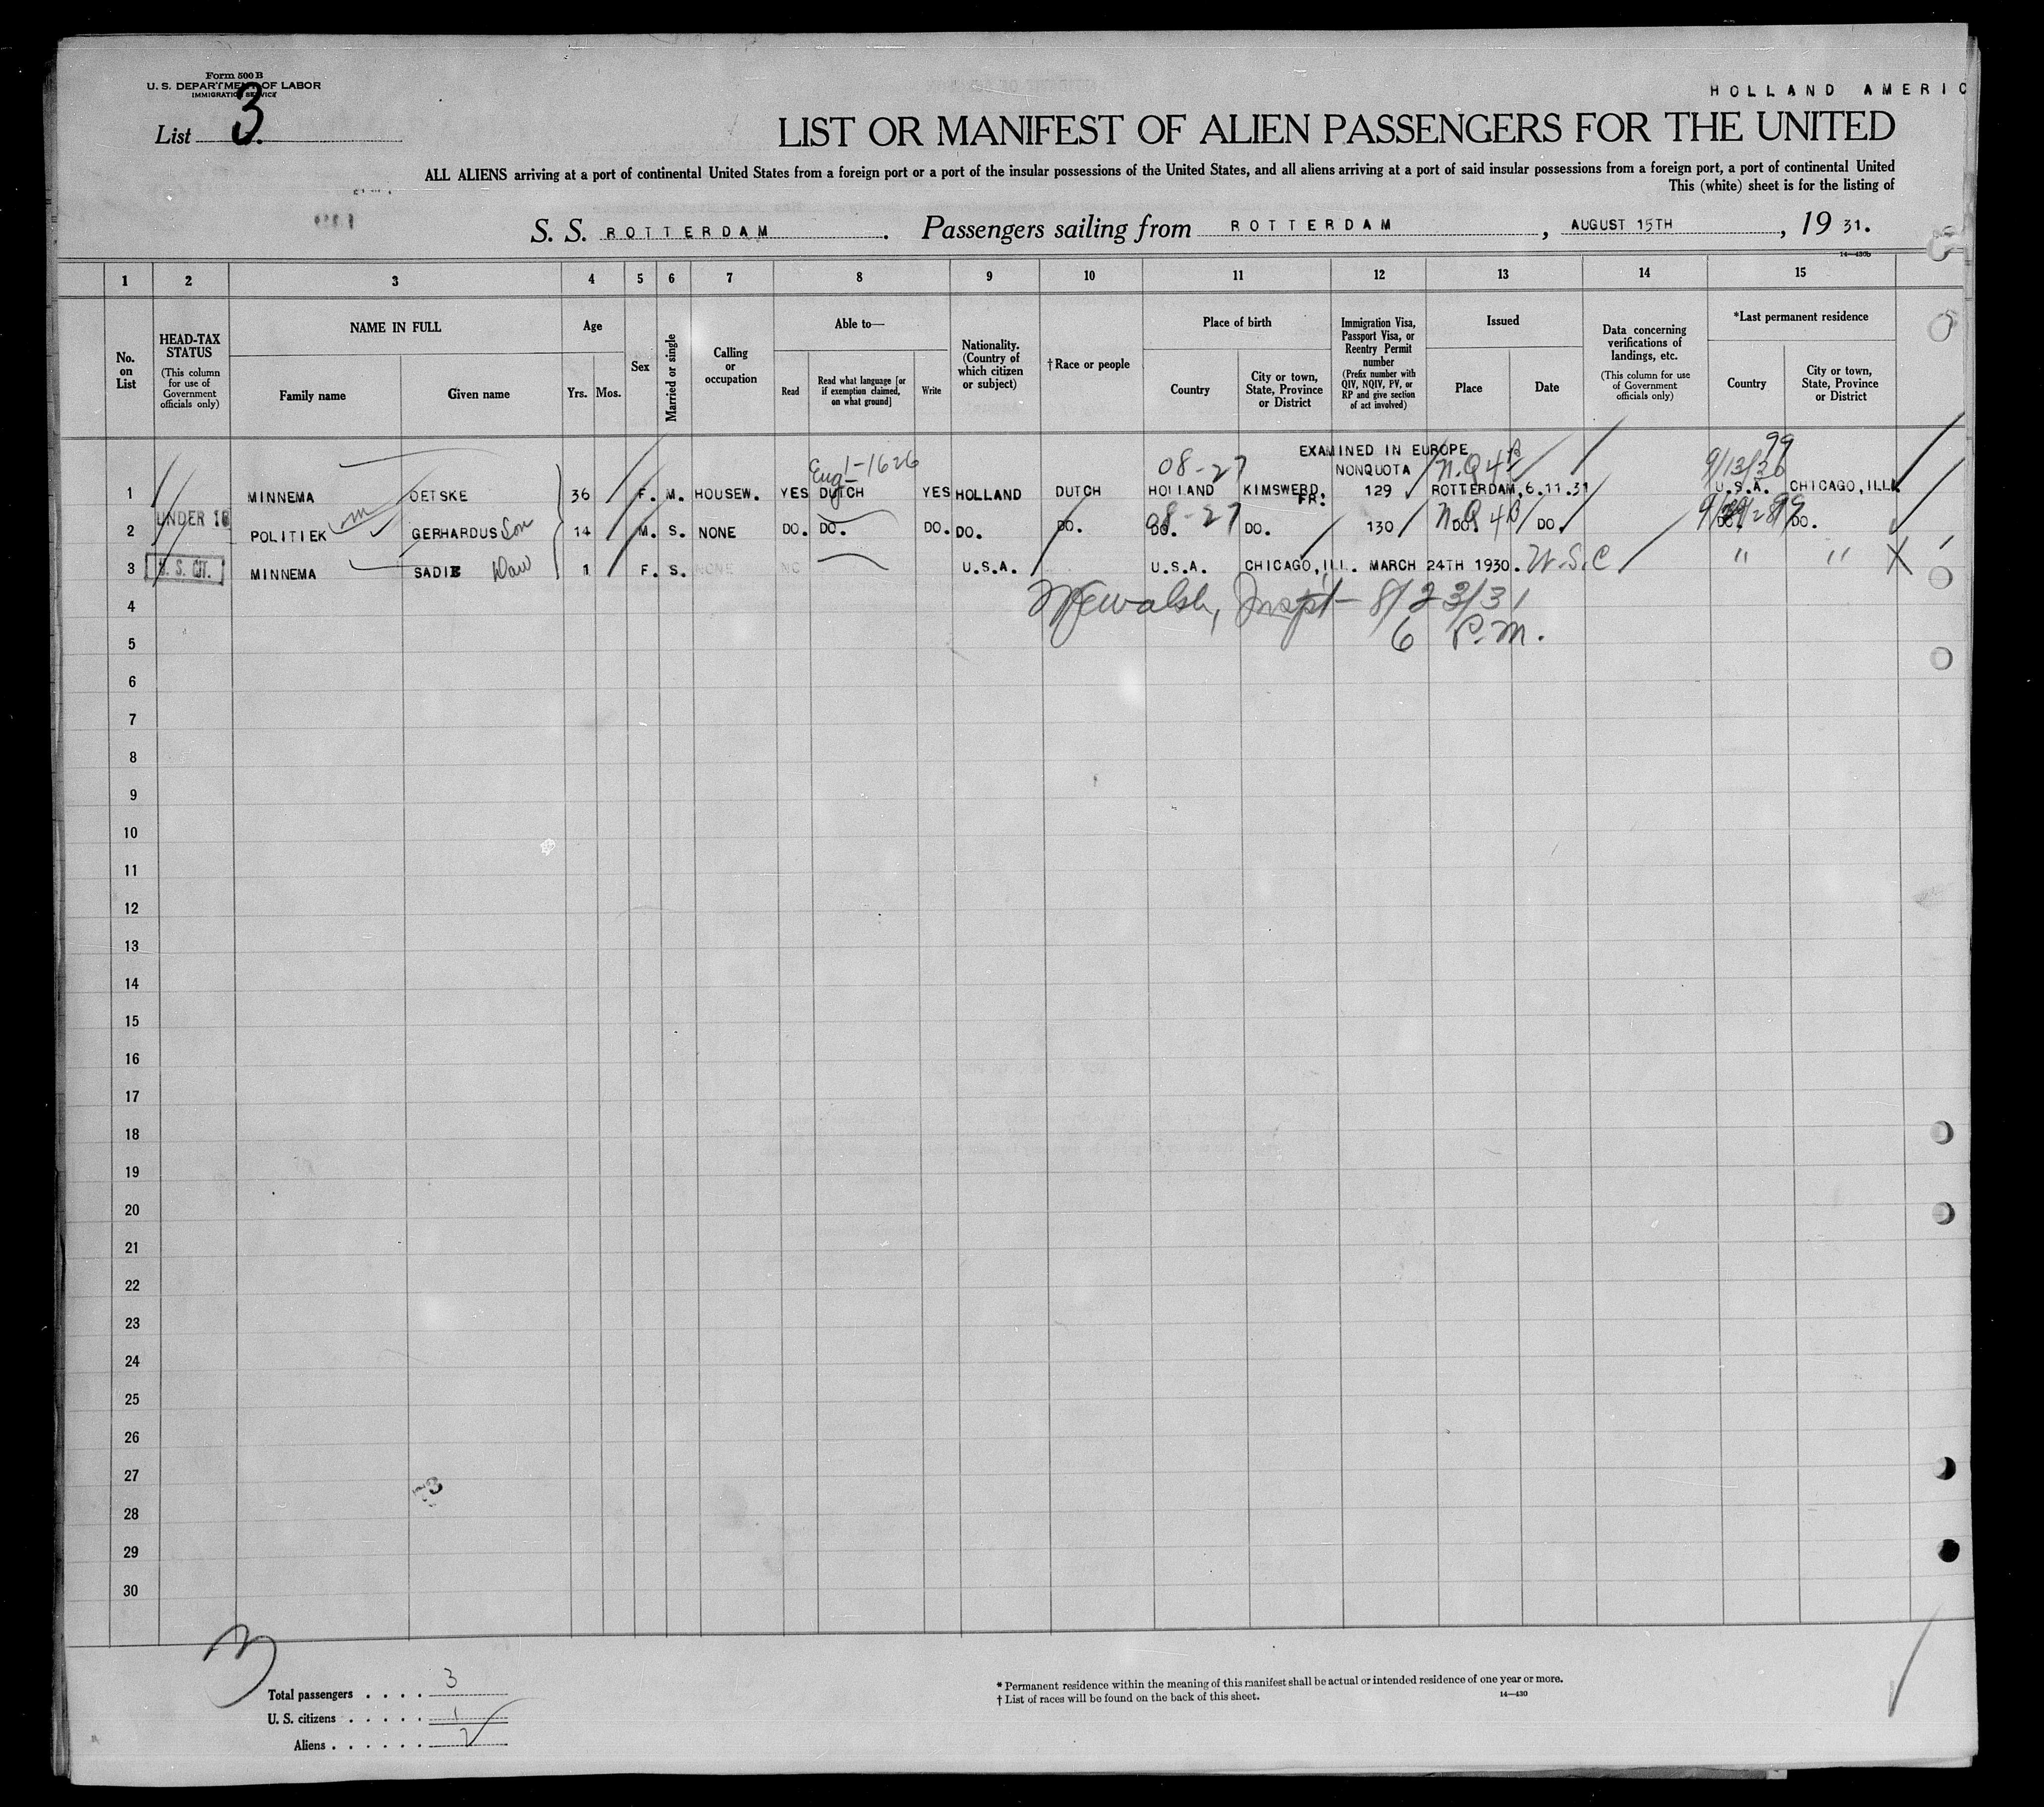 Form 500 B
U. S. DEPARTMENT OF LABOR
IMMIGRATION SERVICE
HOLLAND AMERIC
List 3.
LIST OR MANIFEST OF ALIEN PASSENGERS FOR THE UNITED
ALL ALIENS arriving at a port of continental United States from a foreign port or a port of the insular possessions of the United States, and all aliens arriving at a port of said insular possessions from a foreign port, a port of continental United
This (white) sheet is for the listing of
S. S. ROTTERDAM. Passengers sailing from ROTTERDAM, AUGUST 15TH, 19 31.
14—430b
1 2 3 4 5 6 7 8 9 10 11 12 13 14 15
No. on List
HEAD-TAX STATUS (This column for use of Government officials only)
NAME IN FULL
Family name
Given name
Age
Yrs. Mos.
Sex
Married or single
Calling or occupation
Able to—
Read
Read what language [or if exemption claimed, on what ground]
Write
Nationality. (Country of which citizen or subject)
† Race or people
Place of birth
Country
City or town, State, Province or District
Immigration Visa, Passport Visa, or Reentry Permit number (Prefix number with QIV, NQIV, PV, or RP and give section of act involved)
Issued
Place
Date
Data concerning verifications of landings, etc. (This column for use of Government officials only)
*Last permanent residence
Country
City or town, State, Province or District
EXAMINED IN EUROPE 99
Eng 1-1626 08-27 NONQUOTA N.Q 4B 9/13/26
1 MINNEMA OETSKE 36 F. M. HOUSEW. YES DUTCH YES HOLLAND DUTCH HOLLAND KIMSWERD, FR. 129 ROTTERDAM, 6.11.31 U.S.A. CHICAGO, ILL.
UNDER 16 08-27 N.Q 4B 99
2 POLITIEK m GERHARDUS Son 14 M. S. NONE DO. DO. DO. DO. DO. DO. DO. 130 DO. DO. DO. DO.
3 U. S. CIT. MINNEMA SADIE Dau 1 F. S. NONE NO U.S.A. U.S.A. CHICAGO, ILL. MARCH 24TH 1930. U.S.C " "
4 Walsh, Inspt - 8/23/31
5 6 P.M.
6
7
8
9
10
11
12
13
14
15
16
17
18
19
20
21
22
23
24
25
26
27
28
29
30
3
Total passengers . . . . 3
U. S. citizens . . . . . 1
Aliens . . . . . . 2
* Permanent residence within the meaning of this manifest shall be actual or intended residence of one year or more.
† List of races will be found on the back of this sheet.
14—430